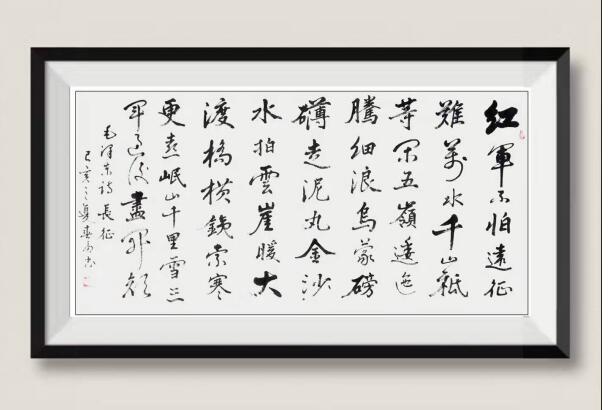 紅軍不怕遠征
難萬水千山祇
等閑五嶺逶迤
騰細浪烏蒙磅
礴走泥丸金沙
水拍雲崖暖大
渡橋橫鐵索寒
更喜岷山千里雪三
軍過後盡開顏
毛澤東詩長征
己亥之夏